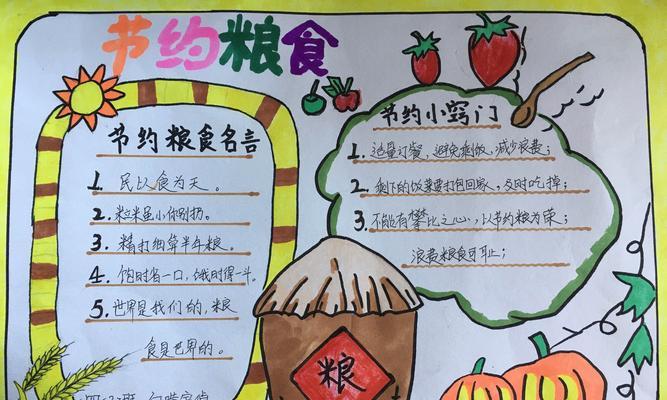 节约粮食
节约粮食名言
1. 民以食为天。
2. 粒米虽小你别扔。
3. 精打细算半年粮。
4. 饱时省一口，饿时得一斗。
5. 世界是我们的，粮
食是世界的。
节约小窍门
1. 适量订餐，避免剩饭，减少浪费；
2. 剩下的饭菜要打包回家，及时吃掉；
3. 不能有攀比之心，以节约为荣；
浪费粮食可耻；
粮